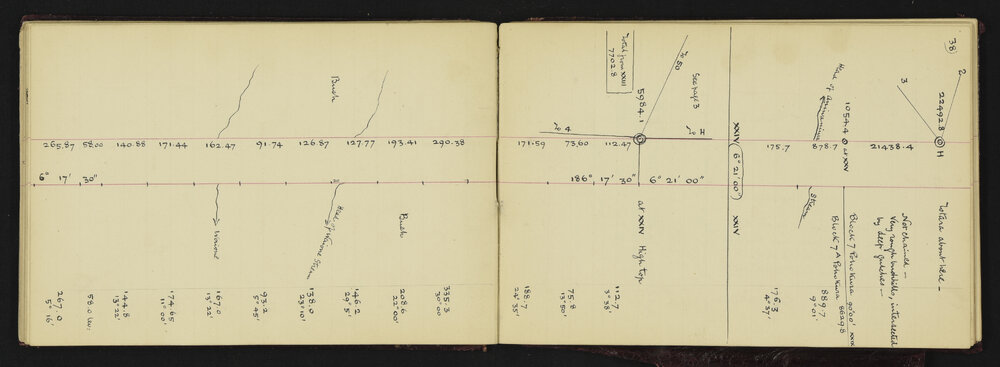 38
2
3
22492.8
H
Totara about here -
Not chained -
Very rough bushhills, intersected
by deep gulches.
21438.4
1054.4
at XXV
Block 7 Pohokura 90°00' XXIX
86298
Block 7A Pohokura
878.7
889.7
9° 01'
Stream
175.7
176.3
4° 37'
XXIV
6° 21' 00"
XXIV
To H
See page 3
To 50
5984.1
Total from XXIII
7702.8
To 4
186° 17' 30"
6° 21' 00"
at XXIV High top
112.47
112.7
3° 38'
73.60
75.8
13° 50'
171.59
188.7
24° 35'
290.38
335.3
30° 00'
193.41
208.6
22° 00'
Bush
127.77
146.2
29° 5'
126.87
138.0
23° 10'
Bush
91.74
93.2
5° 45'
162.47
167.0
13° 22'
171.44
174.65
11° 00'
140.88
144.8
13° 22'
58.00
58.0 lev.
265.87
267.0
5° 16'
6° 17' 30"